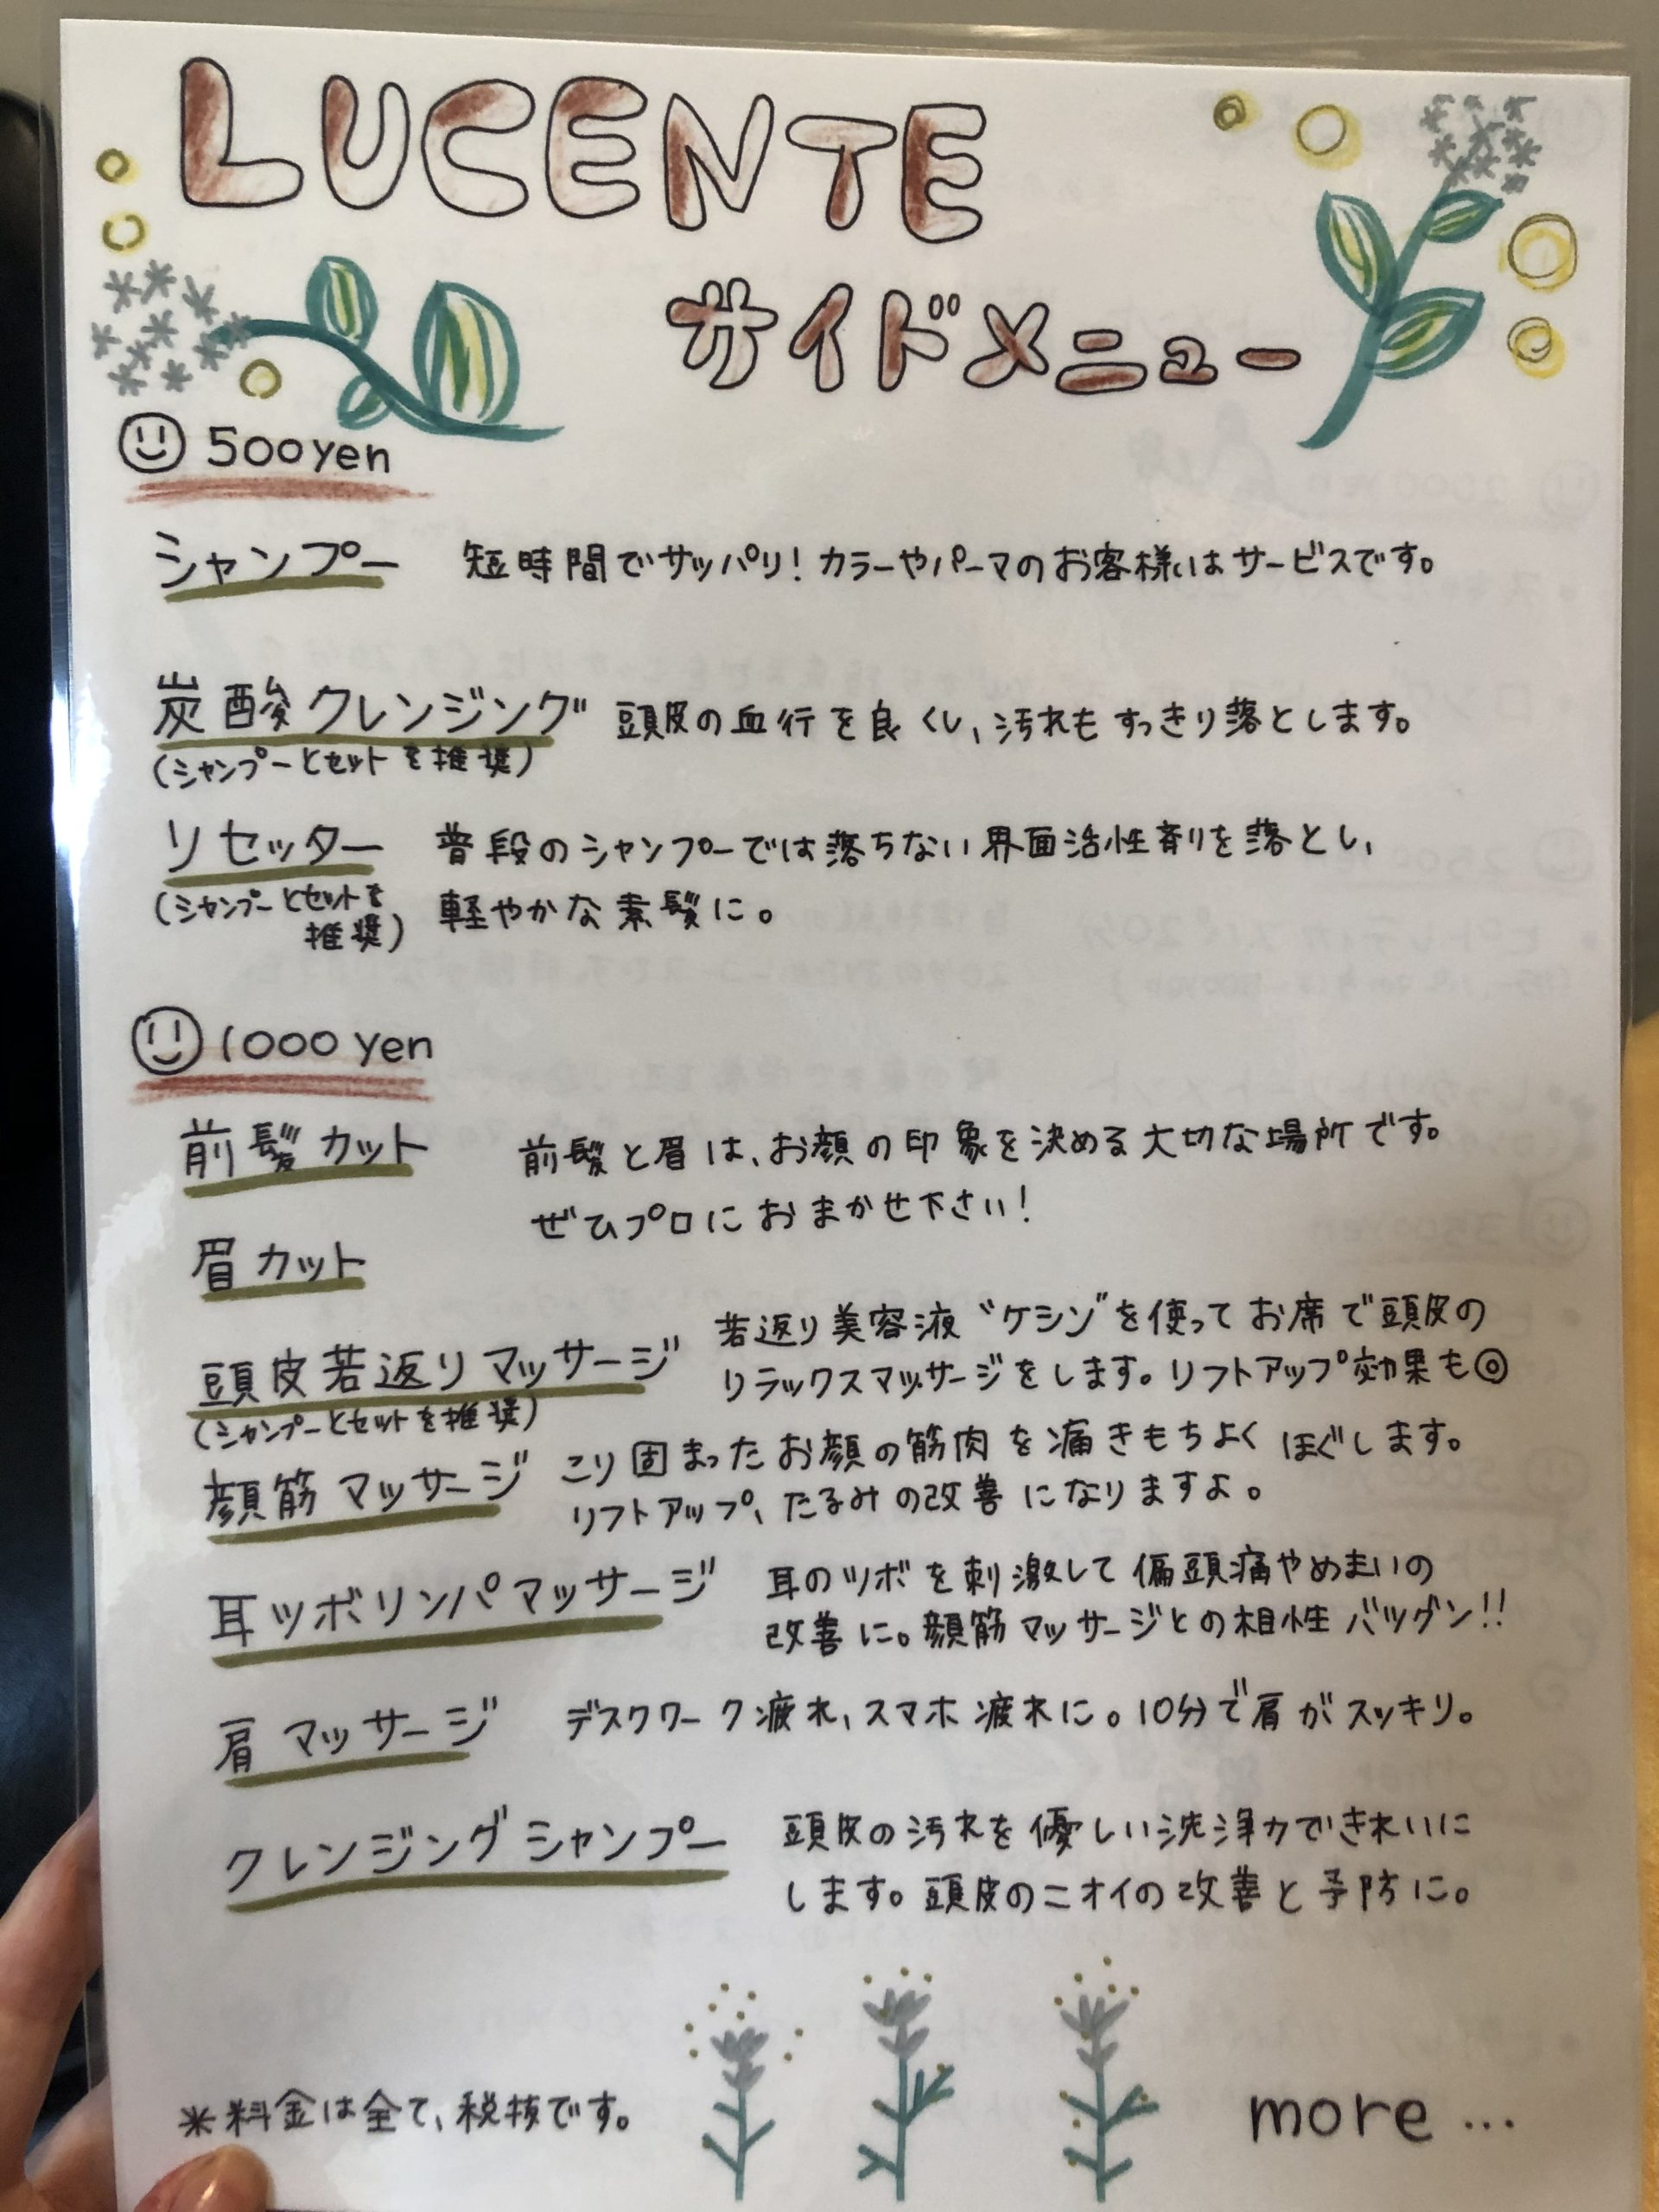 LUCENTE
サイドメニュー
500yen
シャンプー 短時間でサッパリ！カラーやパーマのお客様はサービスです。
炭酸クレンジング 頭皮の血行を良くし、汚れもすっきり落とします。
(シャンプーとセットを推奨)
リセッター 普段のシャンプーでは落ちない界面活性剤を落とし、
(シャンプーとセットを 軽やかな素髪に。
推奨)
1000yen
前髪カット 前髪と眉は、お顔の印象を決める大切な場所です。
ぜひプロにおまかせ下さい！
眉カット
頭皮若返りマッサージ 若返り美容液“ケシン”を使ってお席で頭皮の
リラックスマッサージをします。リフトアップ効果も◎
(シャンプーとセットを推奨)
顔筋マッサージ こり固まったお顔の筋肉を痛きもちよくほぐします。
リフトアップ、たるみの改善になりますよ。
耳ツボリンパマッサージ 耳のツボを刺激して偏頭痛やめまいの
改善に。顔筋マッサージとの相性バツグン!!
肩マッサージ デスクワーク疲れ、スマホ疲れに。10分で肩がスッキリ。
クレンジングシャンプー 頭皮の汚れを優しい洗浄力できれいに
します。頭皮のニオイの改善と予防に。
※料金は全て、税抜です。
more...